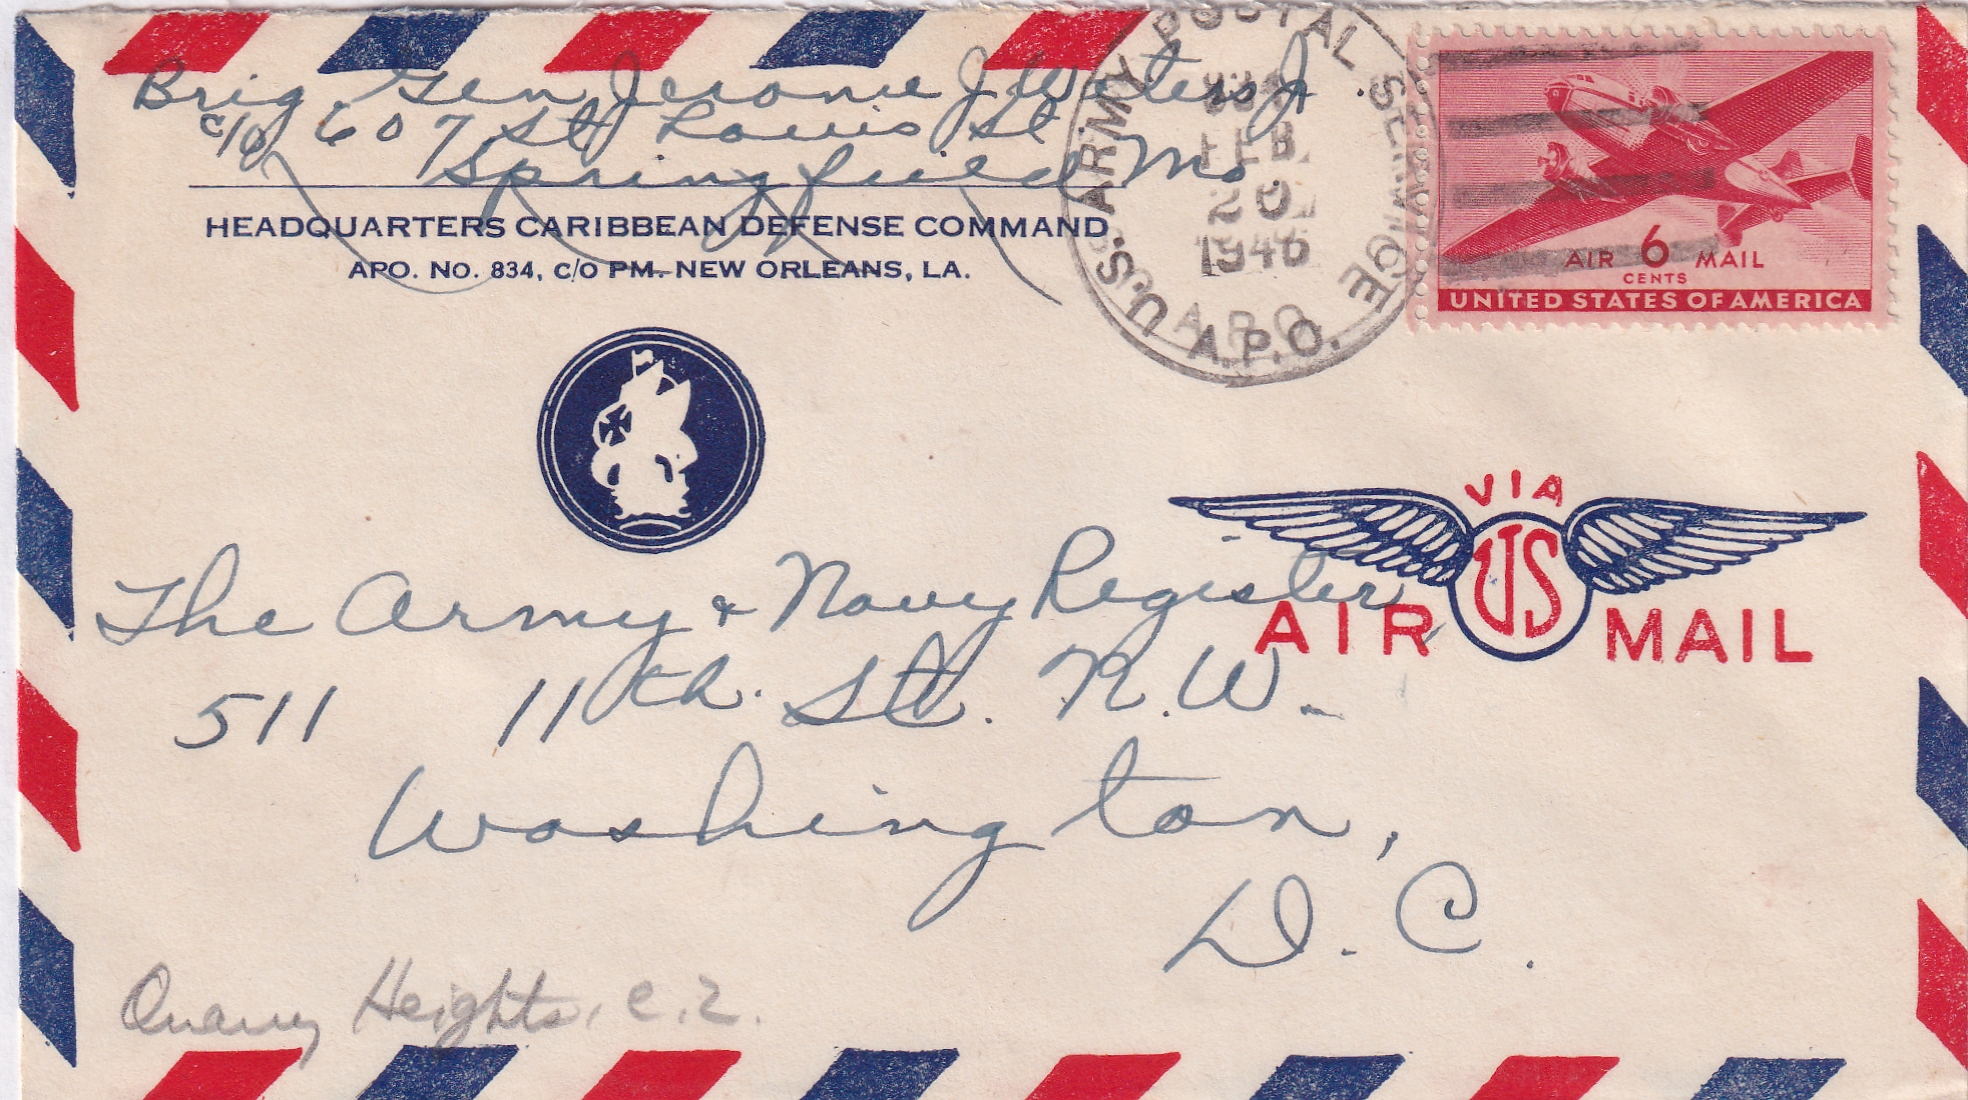 Brig. Gen Jerome J Waters Jr.
c/o 607 St Louis St
Springfield Mo
HEADQUARTERS CARIBBEAN DEFENSE COMMAND
APO. NO. 834, C/O PM. NEW ORLEANS, LA.
U.S. ARMY POSTAL SERVICE
FEB
20
1946
A.P.O.
AIR 6 MAIL
CENTS
UNITED STATES OF AMERICA
VIA
US
AIR MAIL
The Army & Navy Register
511 11th. St. N.W.
Washington,
D.C.
Quarry Heights, C.Z.